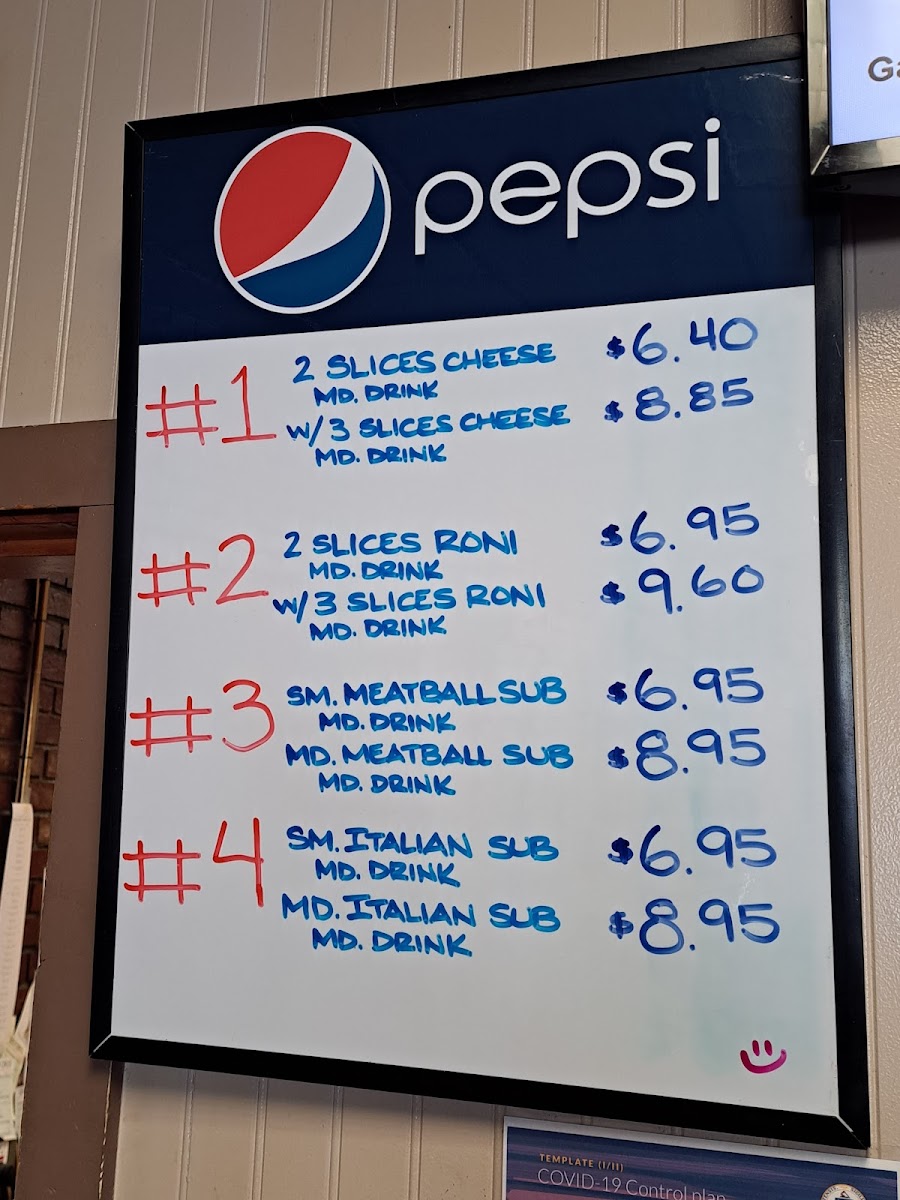 Ga
pepsi
#1 2 SLICES CHEESE $6.40
MD. DRINK
w/3 SLICES CHEESE $8.85
MD. DRINK
#2 2 SLICES RONI $6.95
MD. DRINK
w/3 SLICES RONI $9.60
MD. DRINK
#3 SM. MEATBALL SUB $6.95
MD. DRINK
MD. MEATBALL SUB $8.95
MD. DRINK
#4 SM. ITALIAN SUB $6.95
MD. DRINK
MD. ITALIAN SUB $8.95
MD. DRINK
TEMPLATE (I/II)
COVID-19 Control plan